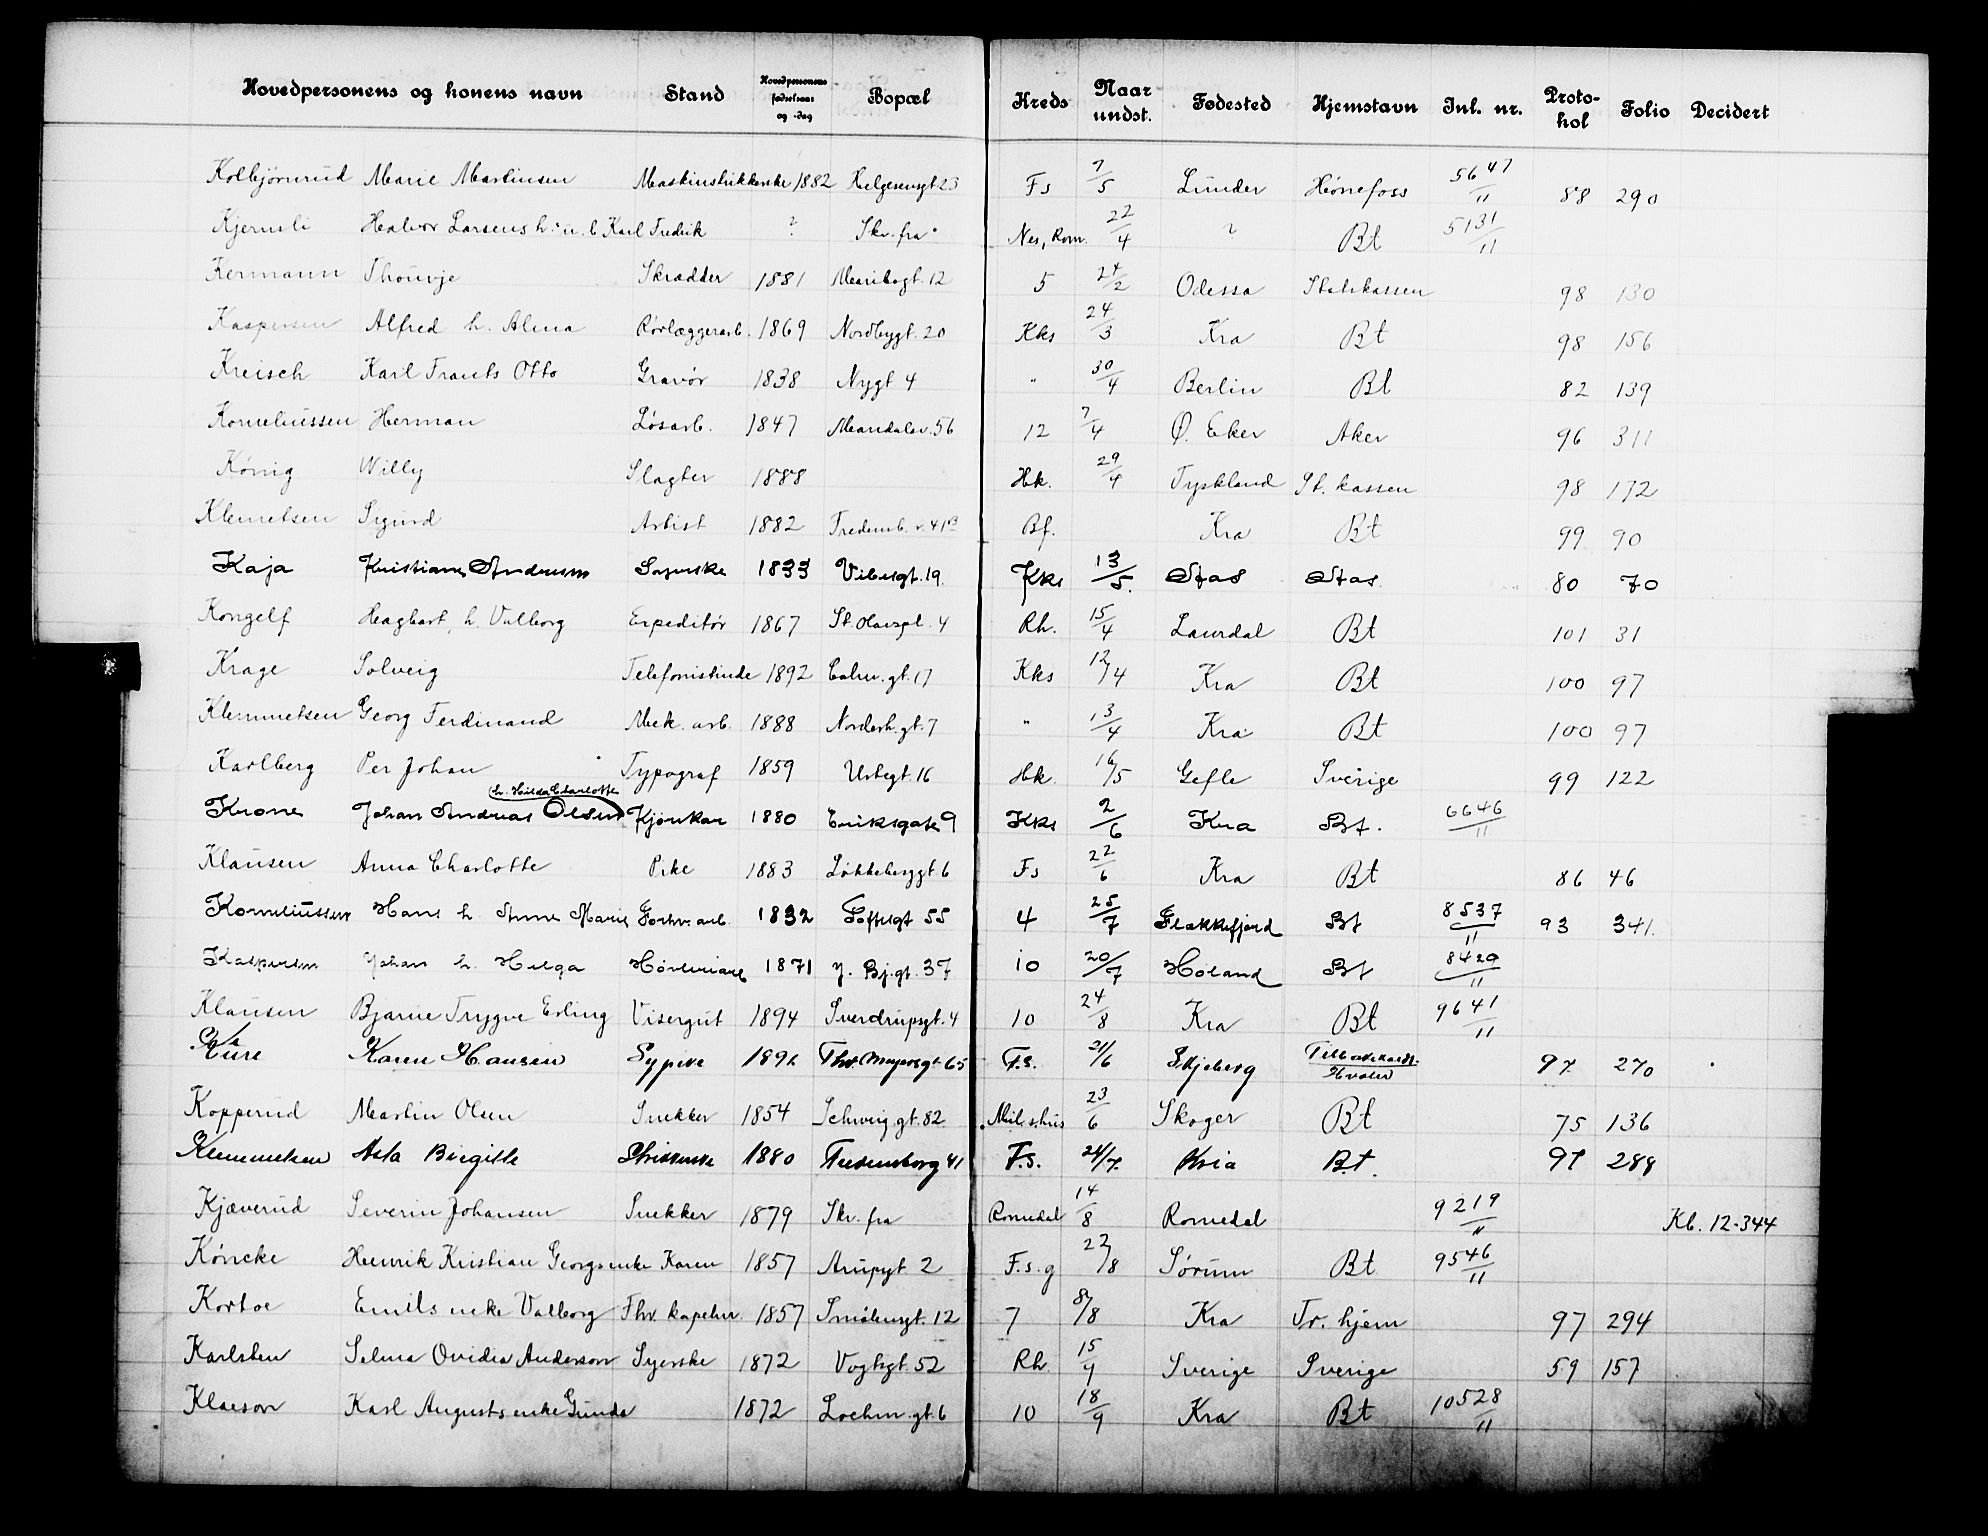 Hovedpersonens og konens navn Stand Hovedpersonens fødselsaar og -dag Bopæl Kreds Naar undst. Fødested Hjemstavn Inl. nr. Protokol Folio Decidert
Kolbjørnrud Marie Martinsen Maskinstrikkerske 1882 Helgesensgt 23 Fs 7/5 Lunder Hønefoss 5647/11 88 290
Kjernsli Halvor Larsens h. u. b Karl Fredrik ? Skr. fra Nes, Rom. 22/4 ? Bt 5131/11
Kermann Thouvje Skrædder 1881 Maribogt. 12 5 24/2 Odessa Statskassen 98 130
Kaspersen Alfred h. Alma Rørlæggerarb. 1869 Nordbygt. 20 Kks 24/3 Kra Bt 98 156
Kreisch Karl Frants Otto Gravør 1838 Nygt 4 " 30/4 Berlin Bt 82 139
Korneliussen Herman Løsarb. 1847 Maridalsv. 56 12 7/4 Ø. Eker Aker 96 311
König Willy Slagter 1888 Hk. 29/4 Tyskland St. kassen 98 172
Klemetsen Sigurd Artist 1882 Fredensb. v. 41B Bf. Kra Bt 99 90
Kaja Kristiane Andersen Syerske 1833 Vibesgt. 19 Kks 13/5. Stas Stas 80 70
Kongelf Hagbart, h. Valborg Expeditør 1867 St. Olavspl. 4 Rh. 15/4 Laurdal Bt 101 31
Krage Solveig Telefonistinde 1892 Colm. gt. 17 Kks 12/4 Kra Bt 100 97
Klemmetsen Georg Ferdinand Mek. arb. 1888 Norderh. gt. 7 " 13/4 Kra Bt 100 97
Karlberg Per Johan Typograf 1859 Ustegt. 16 Hk. 16/5 Gefle Sverige 99 122
h. Hilda Charlotte
Krone Johan Andreas Olsen Kjørekar 1880 Eriksgate 9 Kks 2/6 Kra Bt. 6646/11
Klausen Anna Charlotte Pike 1883 Løkkebergt. 6 Fs 22/6 Kra Bt 86 46
Korneliussen Hans h. Anne Marie Forhv. arb. 1832 Toftesgt 55 4 25/7 Flakkefjord Bt 8537/11 93 341.
Kaspersen Johan h. Helga Høvleriarb 1871 N. Bj. gt. 37 10 20/7 Høland Bt 8420/11
Klausen Bjarne Trygve Erling Visergut 1894 Sverdrupsgt. 4 10 24/8 Kra Bt 9641/11
Kure Karen Hansen Sypike 1892 Thv. Meyersgt 65 F.s. 21/6 Skjeberg Hvaler 97 270
Kopperud Martin Olsen Snekker 1854 Schweig. gt. 82 Mil. s. hus 23/6 Skoger Bt 75 136
Klemmetsen Asta Birgitte Strikkerske 1880 Fredensborg 41 F.s. 24/7. Kria Bt. 97 288
Kjæverud Severin Johansen Snekker 1879 Skr. fra Romedal 14/8 Romedal 9219/11 Kb. 12-344
Köncke Henrik Kristian Georgs enke Karen 1857 Arupgt. 2 F.s. g 22/8 Sørum Bt 9546/11
Kortoe Emils enke Valborg Fhv. kapelm. 1857 Smålensgt. 12 7 8/8 Kra Tr. hjem 97 294
Karlsten Selma Ovidia Anderson Syerske 1872 Vogtsgt. 52 Rh. 15/9 Sverige Sverige 59 157
Klaeson Karl Augusts enke Gunda 1872 Lochm. gt. 6 10 18/9 Kra Bt 10528/11